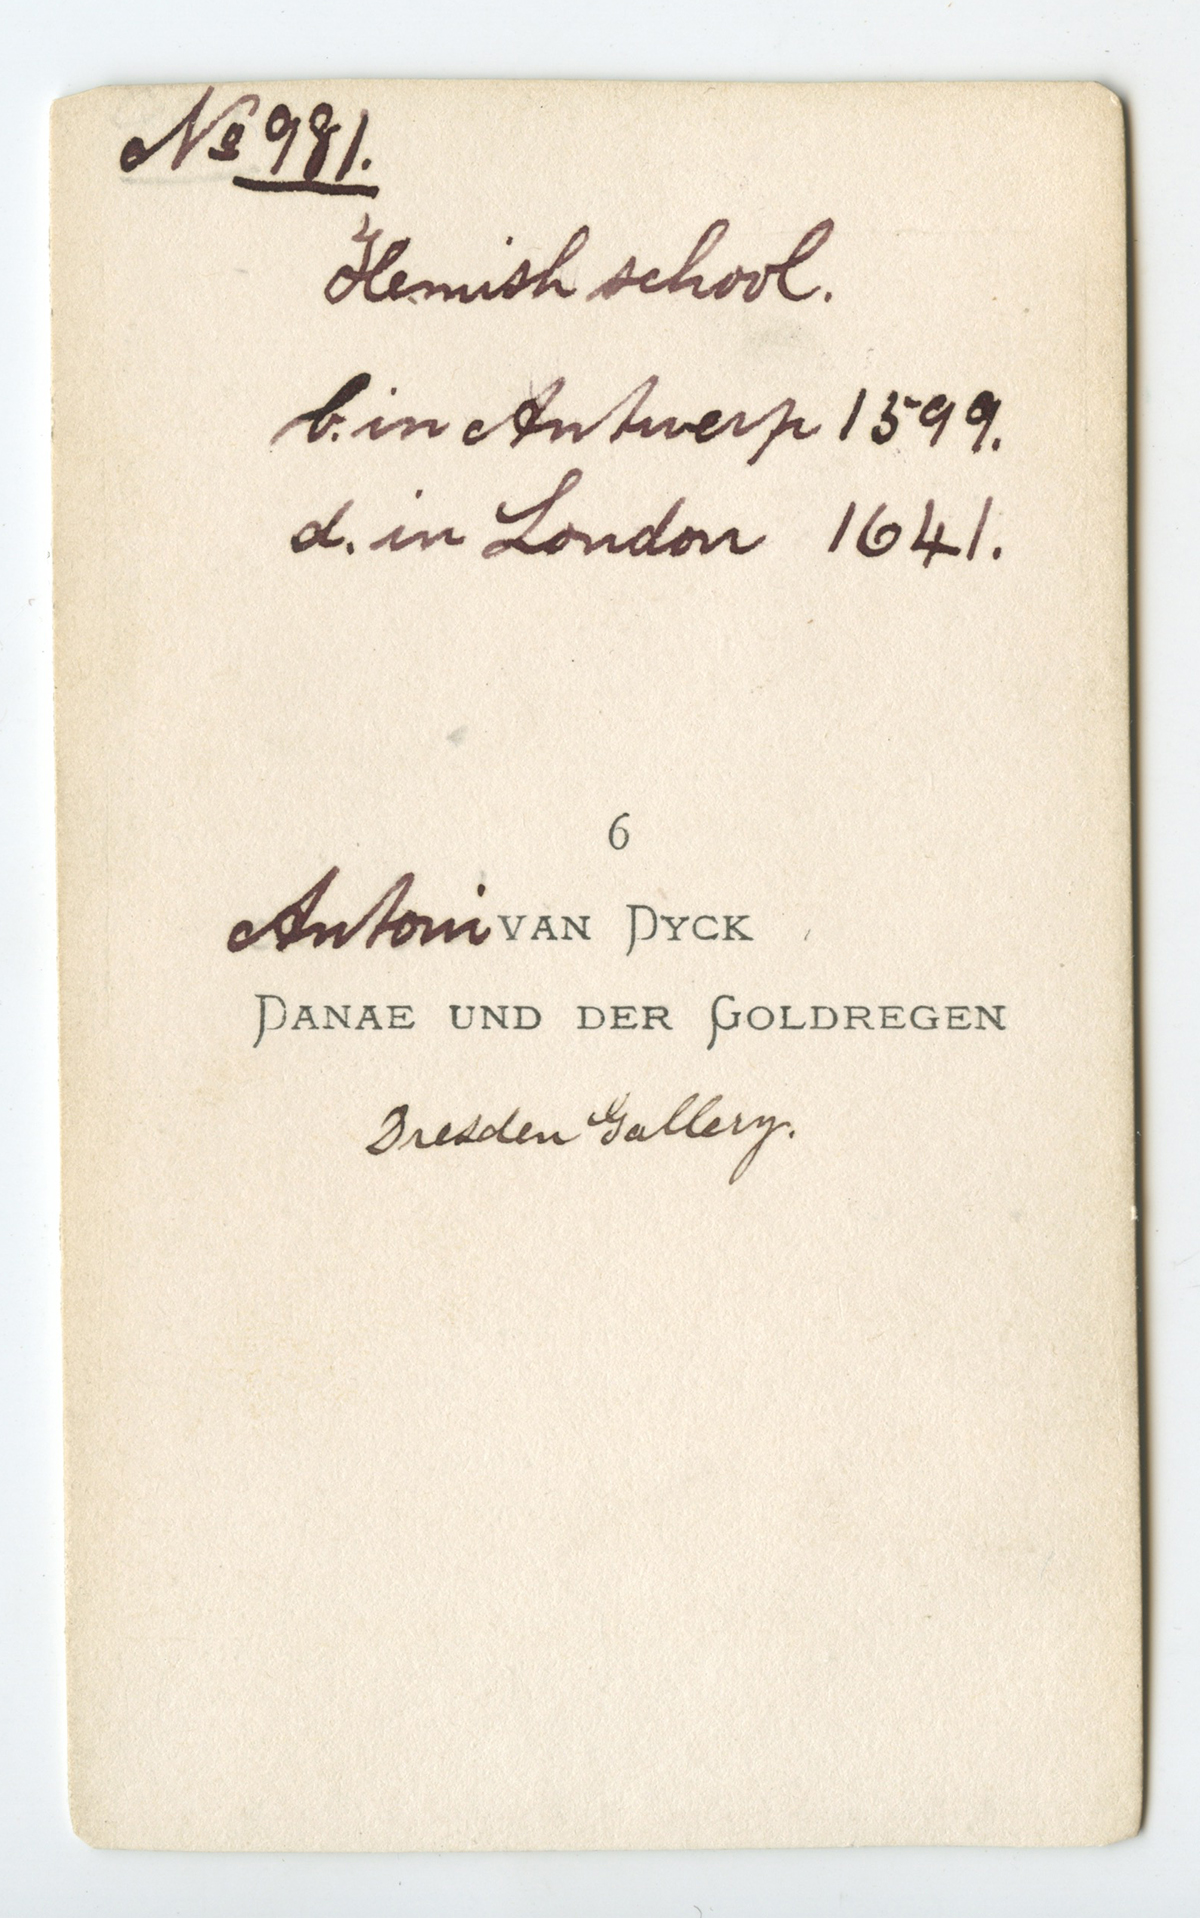 No 981.
Flemish school.
b. in Antwerp 1599.
d. in London 1641.
6
Antoni VAN DYCK
DANAE UND DER GOLDREGEN
Dresden Gallery.